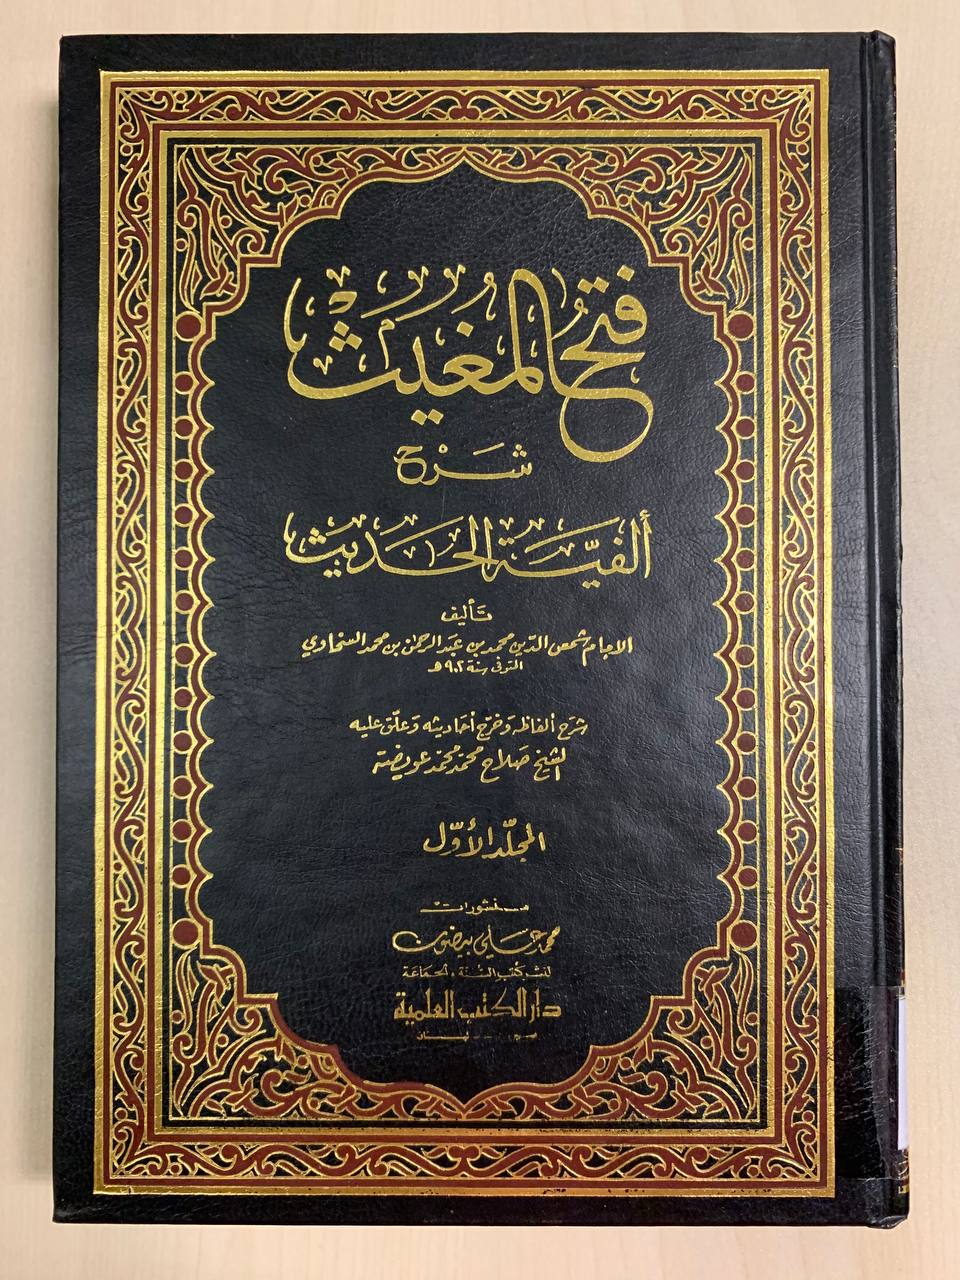 فتح المغيث
شَرْح
ألفيّة الحديث
تأليف
الإمام شمس الدين محمد بن عبد الرحمن بن محمد السخاوي
المتوفى سنة ٩٠٢ هـ
شرح ألفاظه وخرّج أحاديثه وعلّق عليه
الشيخ صلاح محمد محمد عويضة
المجلّد الأوّل
منشورات
محمد علي بيضون
لنشر كتب السنة والجماعة
دار الكتب العلمية